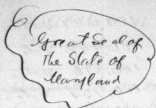 Great Seal of
The State of
Maryland